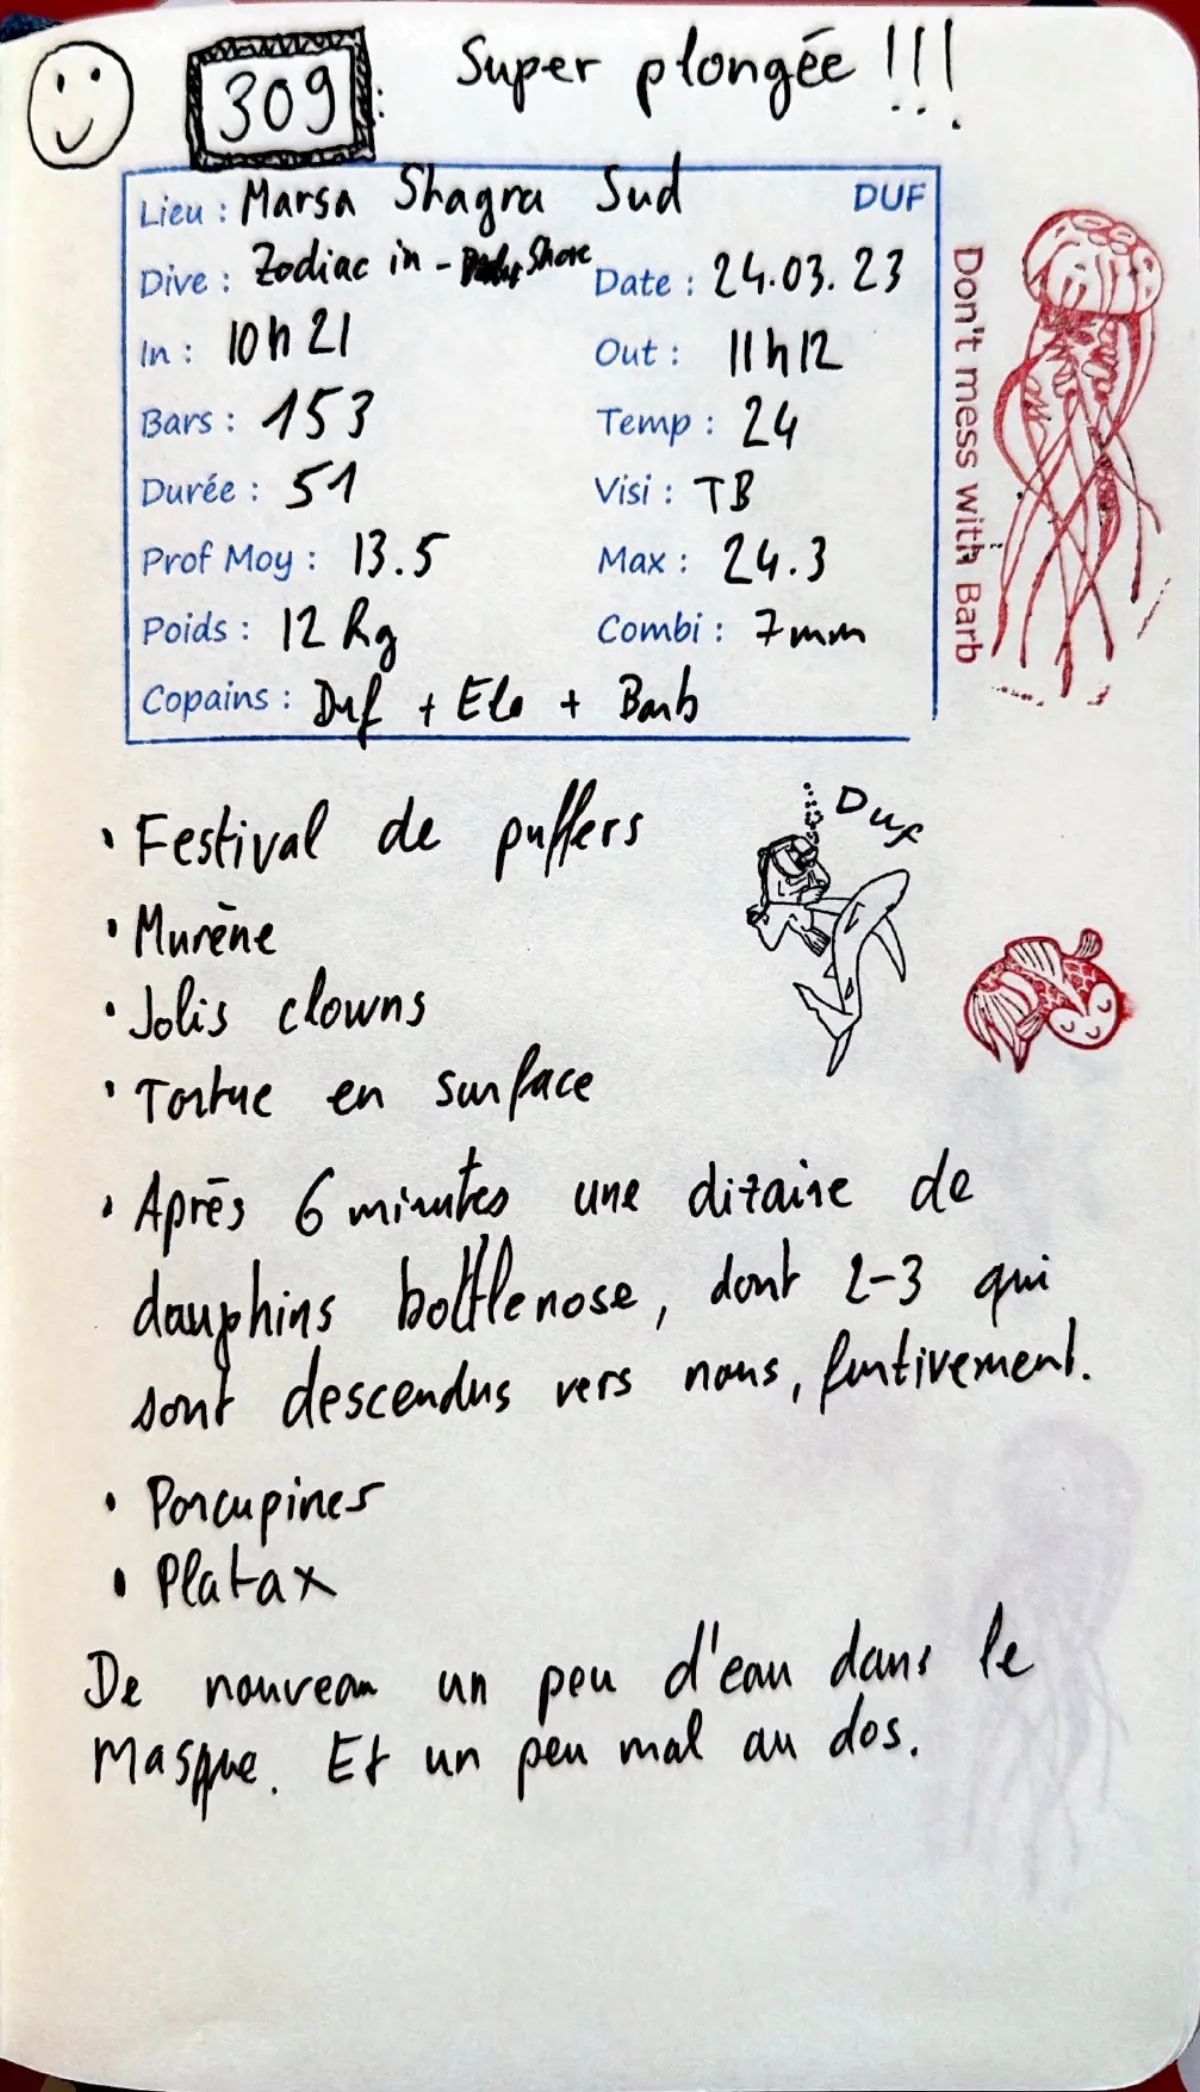 309 : Super plongée !!!
Lieu : Marsa Shagra Sud DUF
Dive : Zodiac in - Shore Date : 24.03.23
In : 10h21 Out : 11h12
Bars : 153 Temp : 24
Durée : 51 Visi : TB
Prof Moy : 13.5 Max : 24.3
Poids : 12 kg Combi : 7mm
Copains : Duf + Ele + Barb
Don't mess with Barb
Duf
• Festival de puffers
• Murène
• Jolis clowns
• Tortue en surface
• Après 6 minutes une dizaine de
dauphins bottlenose, dont 2-3 qui
sont descendus vers nous, furtivement.
• Porcupines
• Platax
De nouveau un peu d'eau dans le
Masque. Et un peu mal au dos.